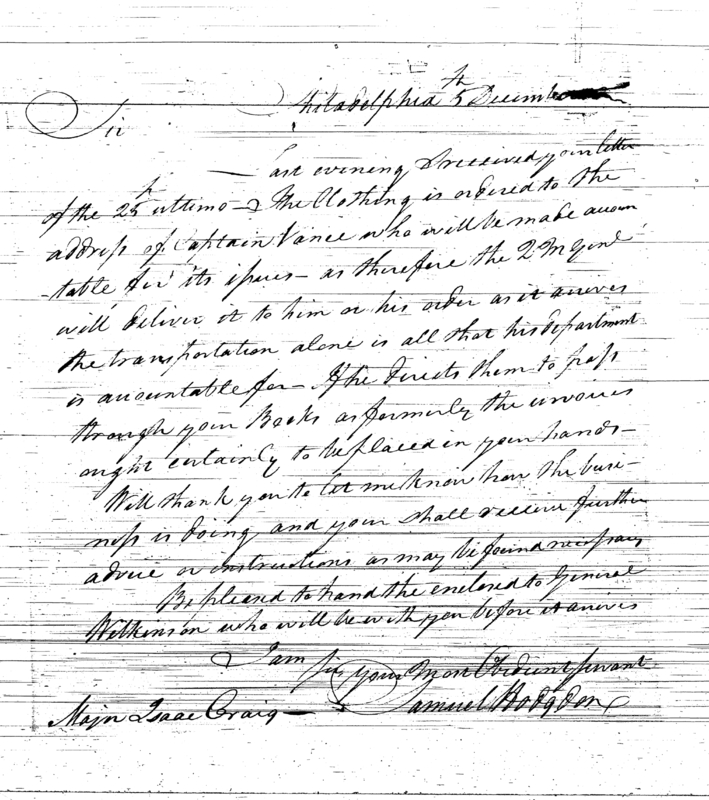 Philadelphia 5th December
Sir
Last evening I received your letter
of the 25th ultimo — The Clothing is ordered to the
address of Captain Vance who will be made accoun
-table for its issues — as therefore the QM Genl
will deliver it to him or his order as it arrives
the transportation alone is all that his department
is accountable for — If he directs them to pass
through your Books as formerly the invoices
ought certainly to be placed in your hands —
Will thank you to let me know how the busi–
ness is doing and you shall receive further
advice or instructions as may be found necessary
Be pleased to hand the enclosed to General
Wilkinson who will be with you before it arrives
I am
Sir your Most Obedient servant
Samuel Hodgdon
Majr Isaac Craig —